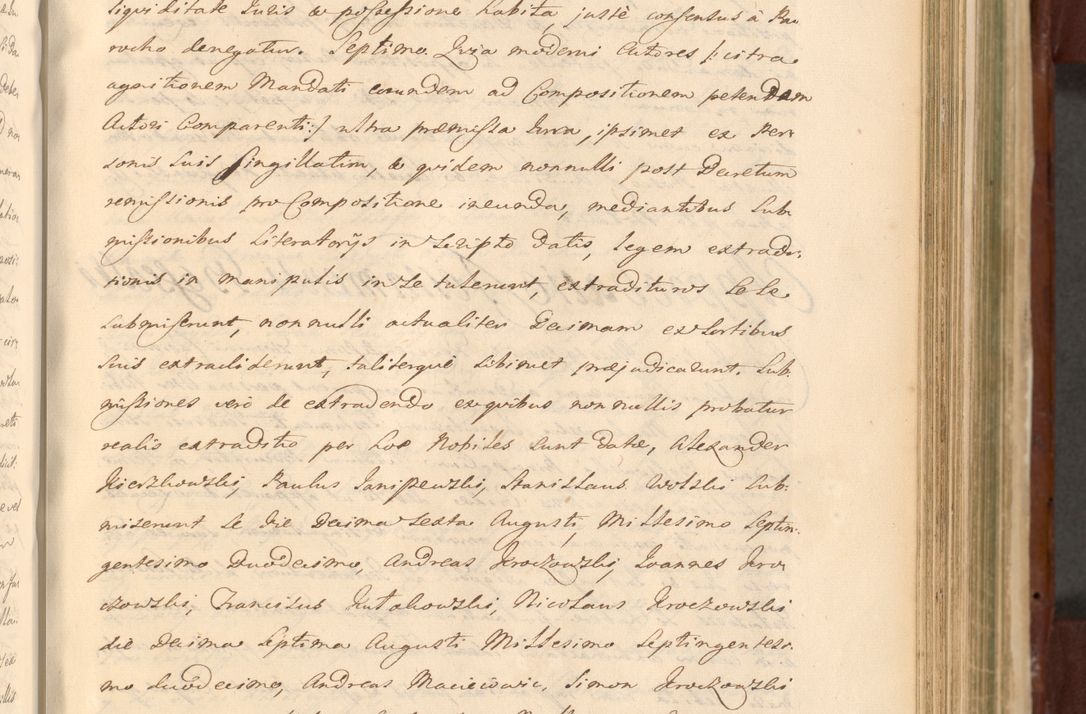 liquiditate Juris & possessione habita, justè consensus à Pa-
rocho denegatur. Septimo Quia moderni Actores /: citra
agnitionem Mandati eorundem ad Compositionem petendam
Actori Comparenti :/ ultra præmissa Jura, ipsimet ex Per
sonis suis singillatim, & quidem nonnulli post Decretum
remissionis pro Compositione ineunda, mediantibus Sub
missionibus Literatorÿs in Scripto datis, legem extradi-
tionis in manipulis in se tulerunt, extradituros se se
submiserunt, nonnulli actualiter Decimam ex Sortibus
suis extradiderunt, talitergue sibimet præjudicarunt. Sub-
missiones verò de extradendo ex quibus nonnullis probatur
realis extraditio per hos Nobiles sunt datæ, Alexander
Kierzkowski, Paulus Janiszewski, Stanislaus Wolski sub-
miserunt se die Decima Sexta Augusti, Millesimo Septin-
gentesimo Duodecimo, Andreas Kroczowski, Joannes Kro
czowski, Franciscus Rutakowski, Nicolaus Kroczowski
die Decima Septima Augusti Millesimo Septingentesi-
mo duodecimo, Andreas Maciewic, Simon Kroczowski